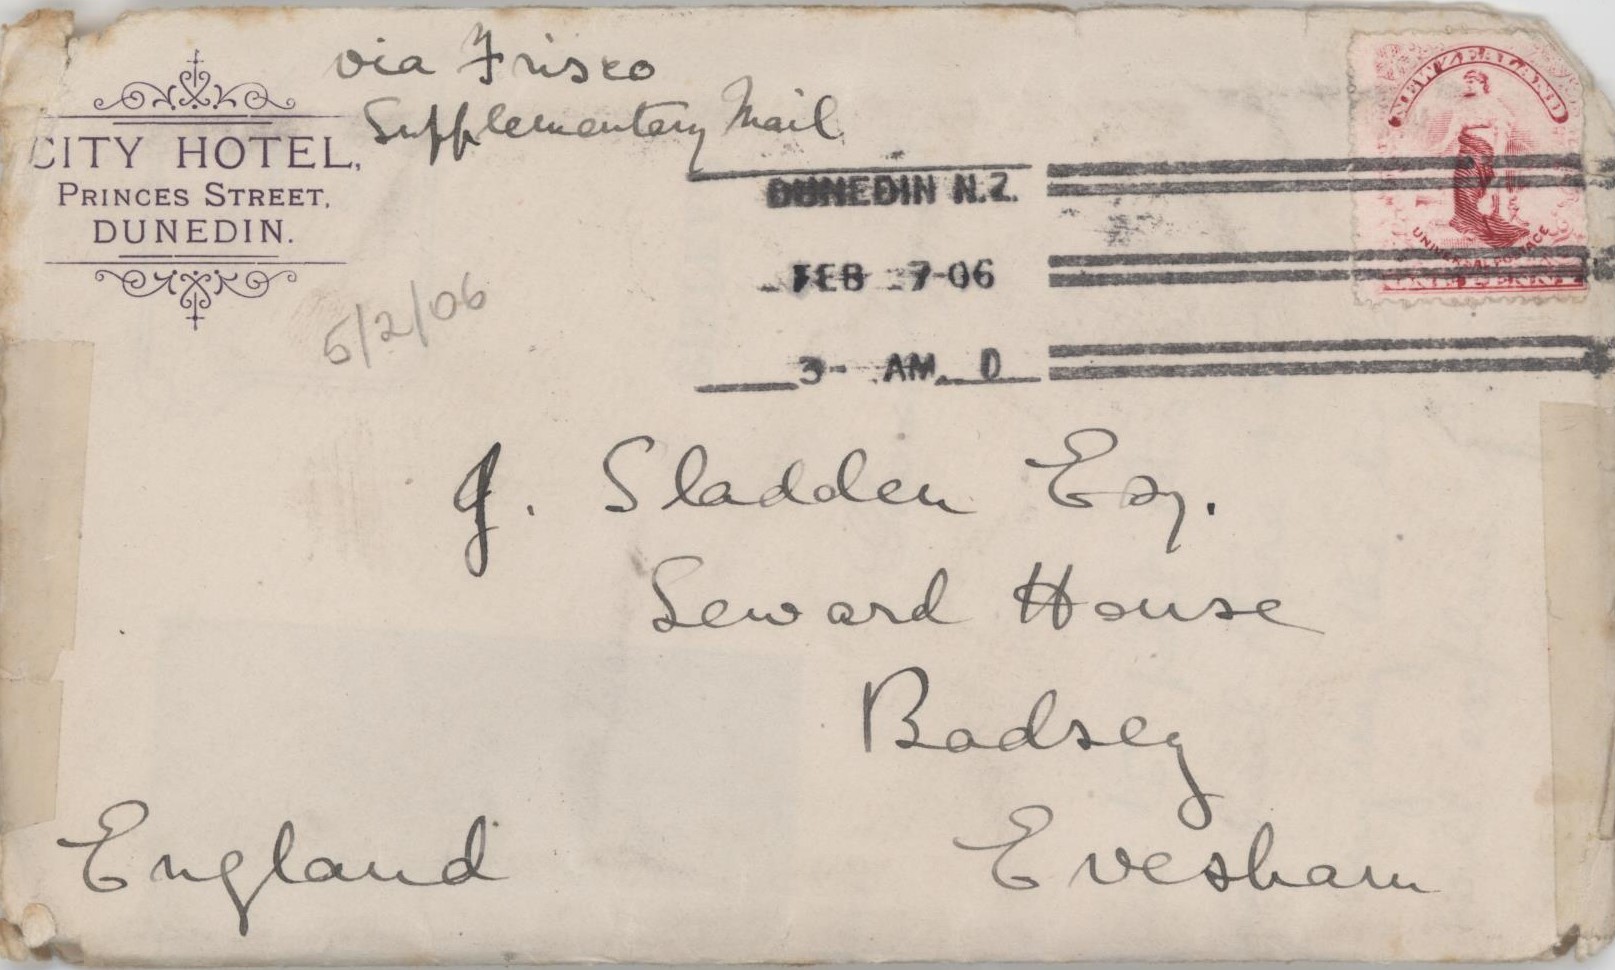 via Frisco
Supplementary Mail
CITY HOTEL,
PRINCES STREET,
DUNEDIN.
5/2/06
DUNEDIN N.Z.
FEB 7-06
3- AM. D
NEW ZEALAND
UNIVERSAL POSTAGE
ONE PENNY
J. Sladden Esq.
Seward House
Badsey
Evesham
England